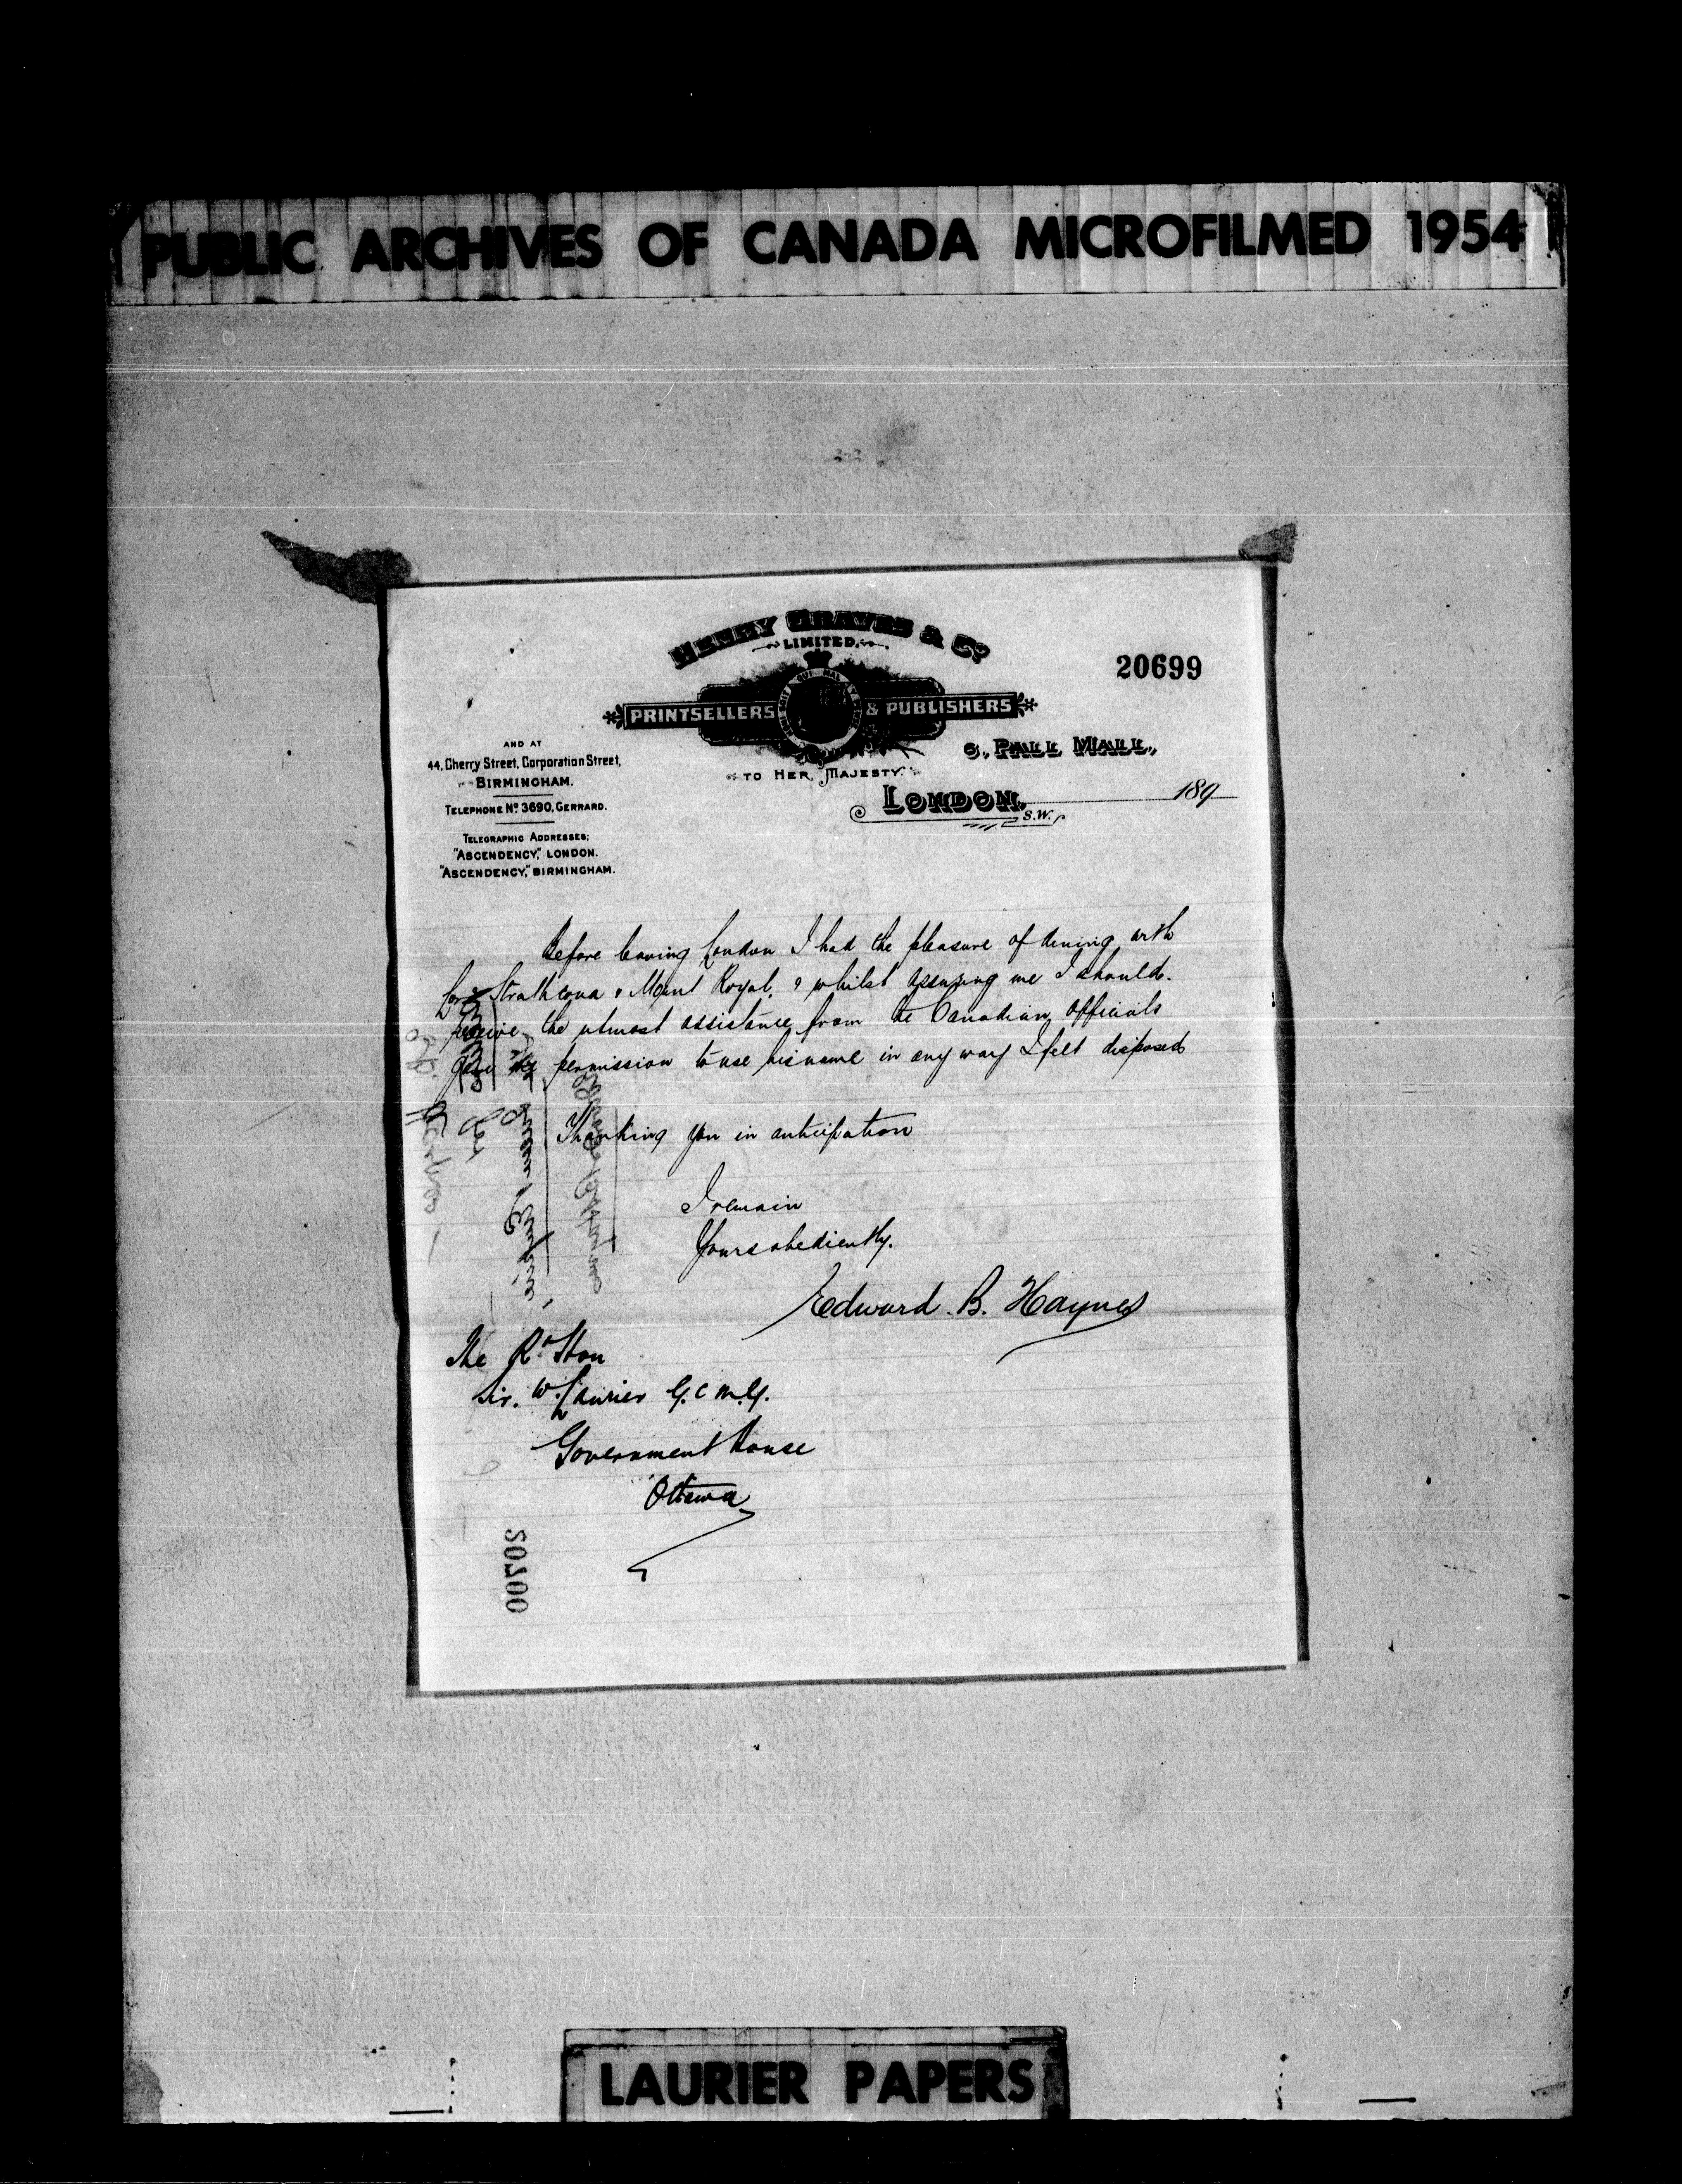 PUBLIC ARCHIVES OF CANADA MICROFILMED 1954
HENRY GRAVES & Co.
LIMITED.
20699
PRINTSELLERS & PUBLISHERS
TO HER MAJESTY.
6, PALL MALL,
LONDON, S.W. 189
AND AT
44, Cherry Street, Corporation Street,
BIRMINGHAM.
TELEPHONE No. 3690, GERRARD.
TELEGRAPHIC ADDRESSES;
"ASCENDENCY," LONDON.
"ASCENDENCY," BIRMINGHAM.
Before leaving London I had the pleasure of dining with
Lord Strathcona & Mount Royal, & whilst assuring me I should
receive the utmost assistance from the Canadian Officials
gave me permission to use his name in any way I felt disposed
Thanking you in anticipation
I remain
Yours obediently.
Edward. B. Haynes
The Rt Hon
Sir. W. Laurier G.C.M.G.
Government House
Ottawa
20700
LAURIER PAPERS